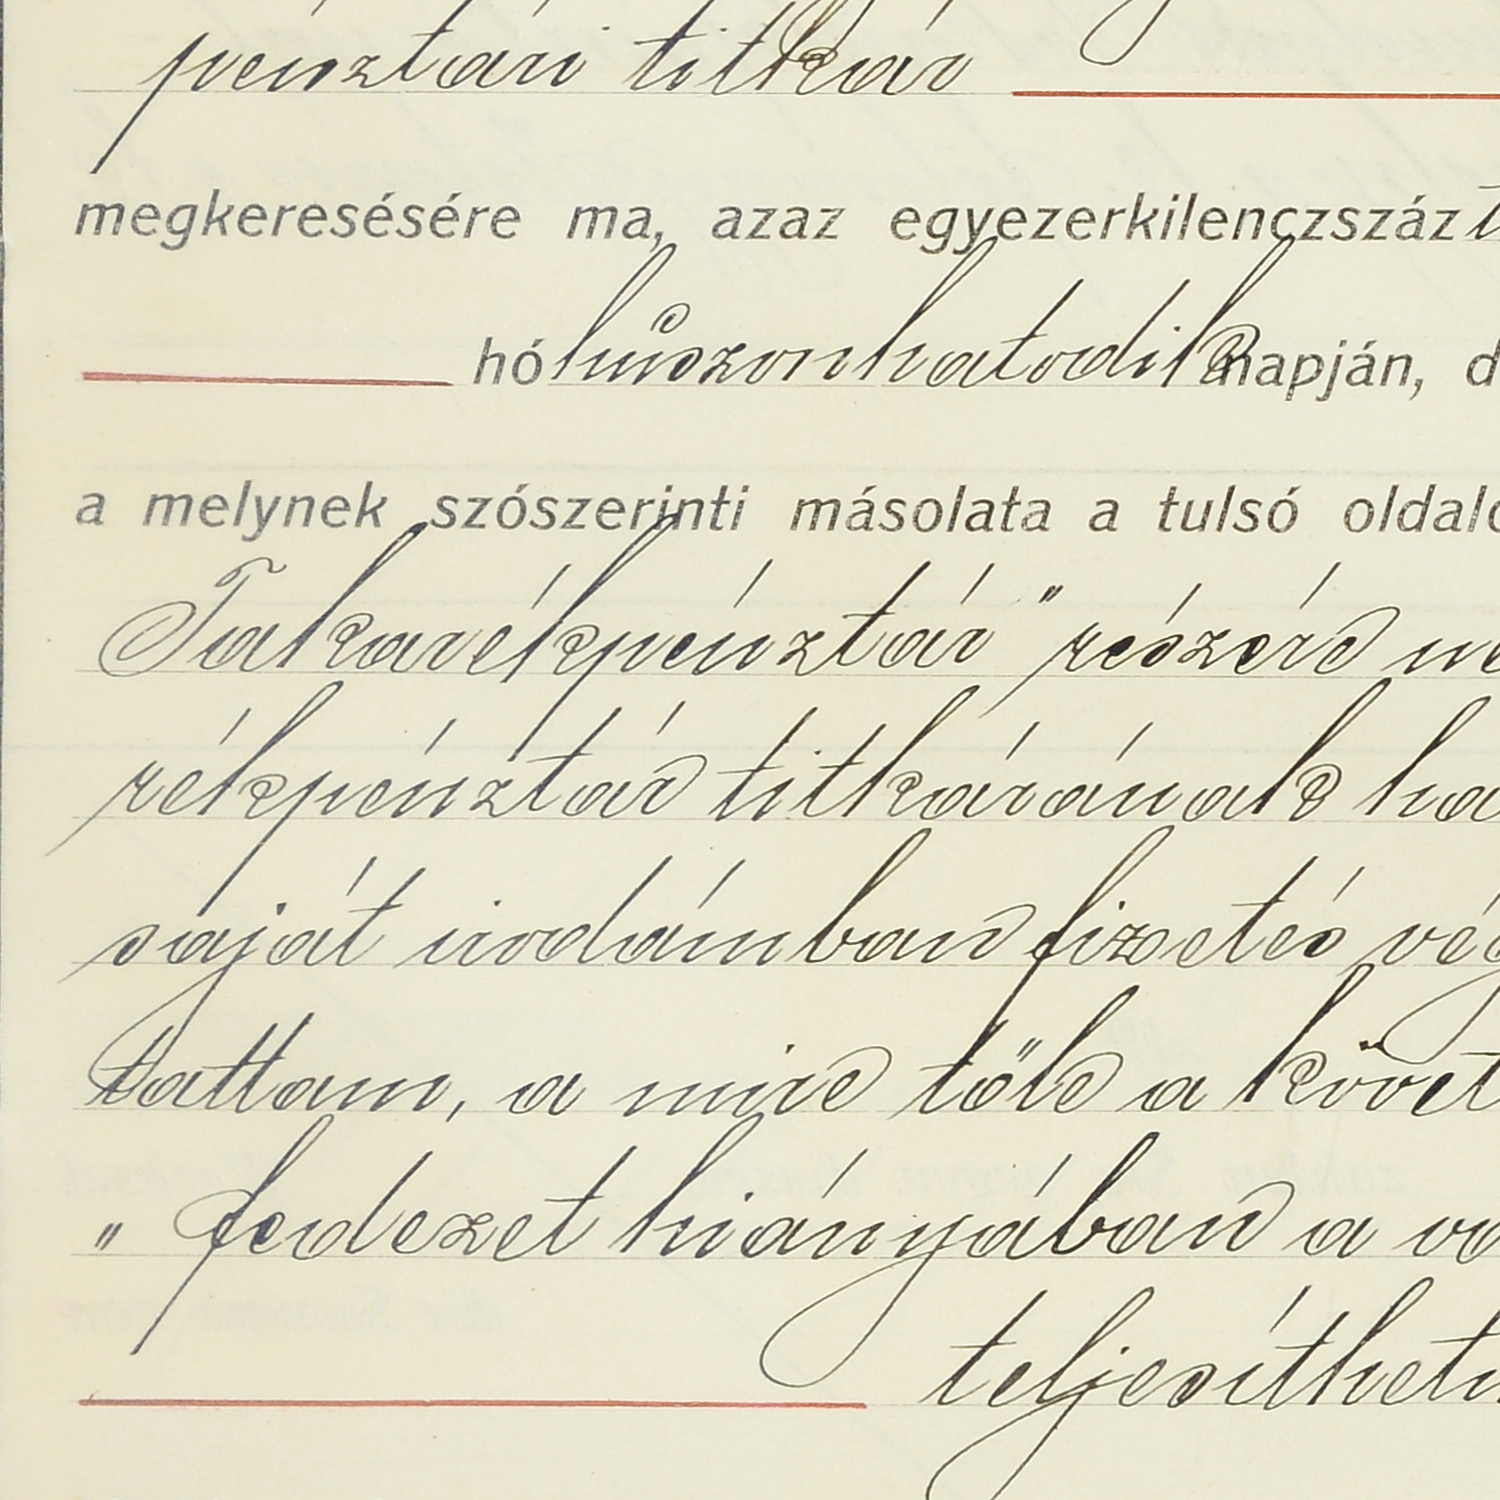 pénztári titkár
megkeresésére ma, azaz egyezerkilenczszáz
hó huszonhatodik napján, d
a melynek szószerinti másolata a tulsó oldalo
Takarékpénztár" részére ne
rékpénztár titkárának ha
saját irodámban fizetés vég
tattam, a mire tőle a követ
„ fedezet hiányában a vá
teljesíthető